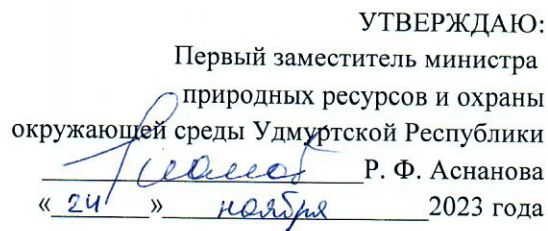 УТВЕРЖДАЮ:
Первый заместитель министра
природных ресурсов и охраны
окружающей среды Удмуртской Республики
Р. Ф. Аснанова
«24» ноября 2023 года